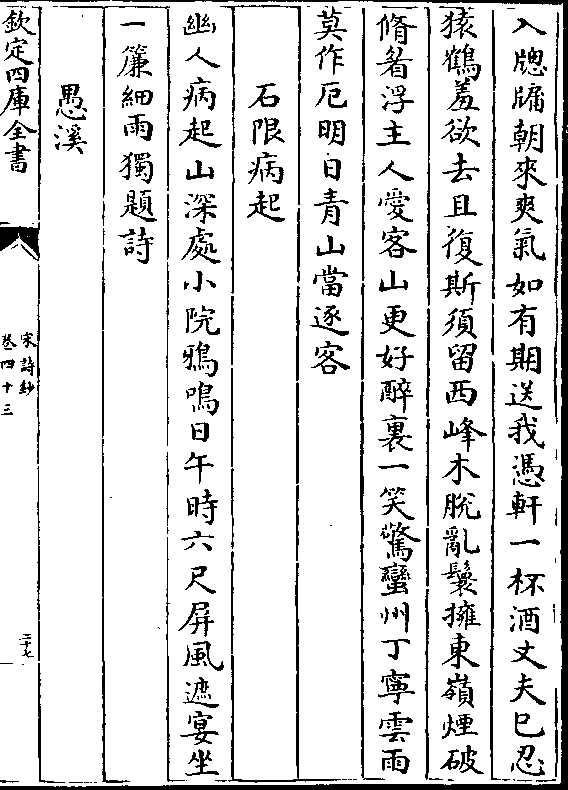 入牕牖朝來爽氣如有期送我憑軒一杯酒丈夫已忍
猿鶴羞欲去且復斯須留西峰木脫亂鬟擁東嶺煙破
脩眉浮主人愛客山更好醉裏一笑驚蠻州丁寧雲雨
莫作厄明日青山當逐客
石限病起
幽人病起山深處小院鴉鳴日午時六尺屏風遮宴坐
一簾細雨獨題詩
愚溪
欽定四庫全書
宋詩鈔
卷四十三
二十七